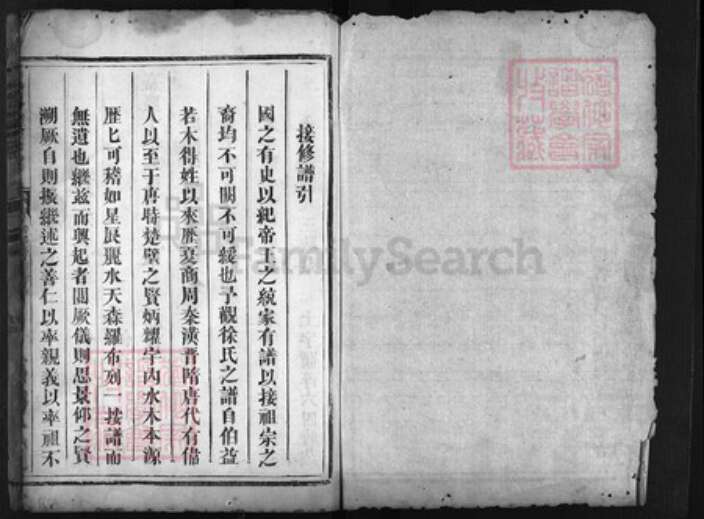 接修譜引
國之有史以紀帝王之統家有譜以接祖宗之
裔均不可闕不可緩也予觀徐氏之譜自伯益
若木得姓以來歷夏商周秦漢晉隋唐代有偉
人以至于唐時楚璧之賢炳耀宇內水木本源
歷匕可稽如星辰麗水天森羅布列一接譜而
無遺也繼茲而興起者閱厥儀則思景仰之賢
溯厥自則擬繼述之善仁以率親義以率祖不
FamilySearch